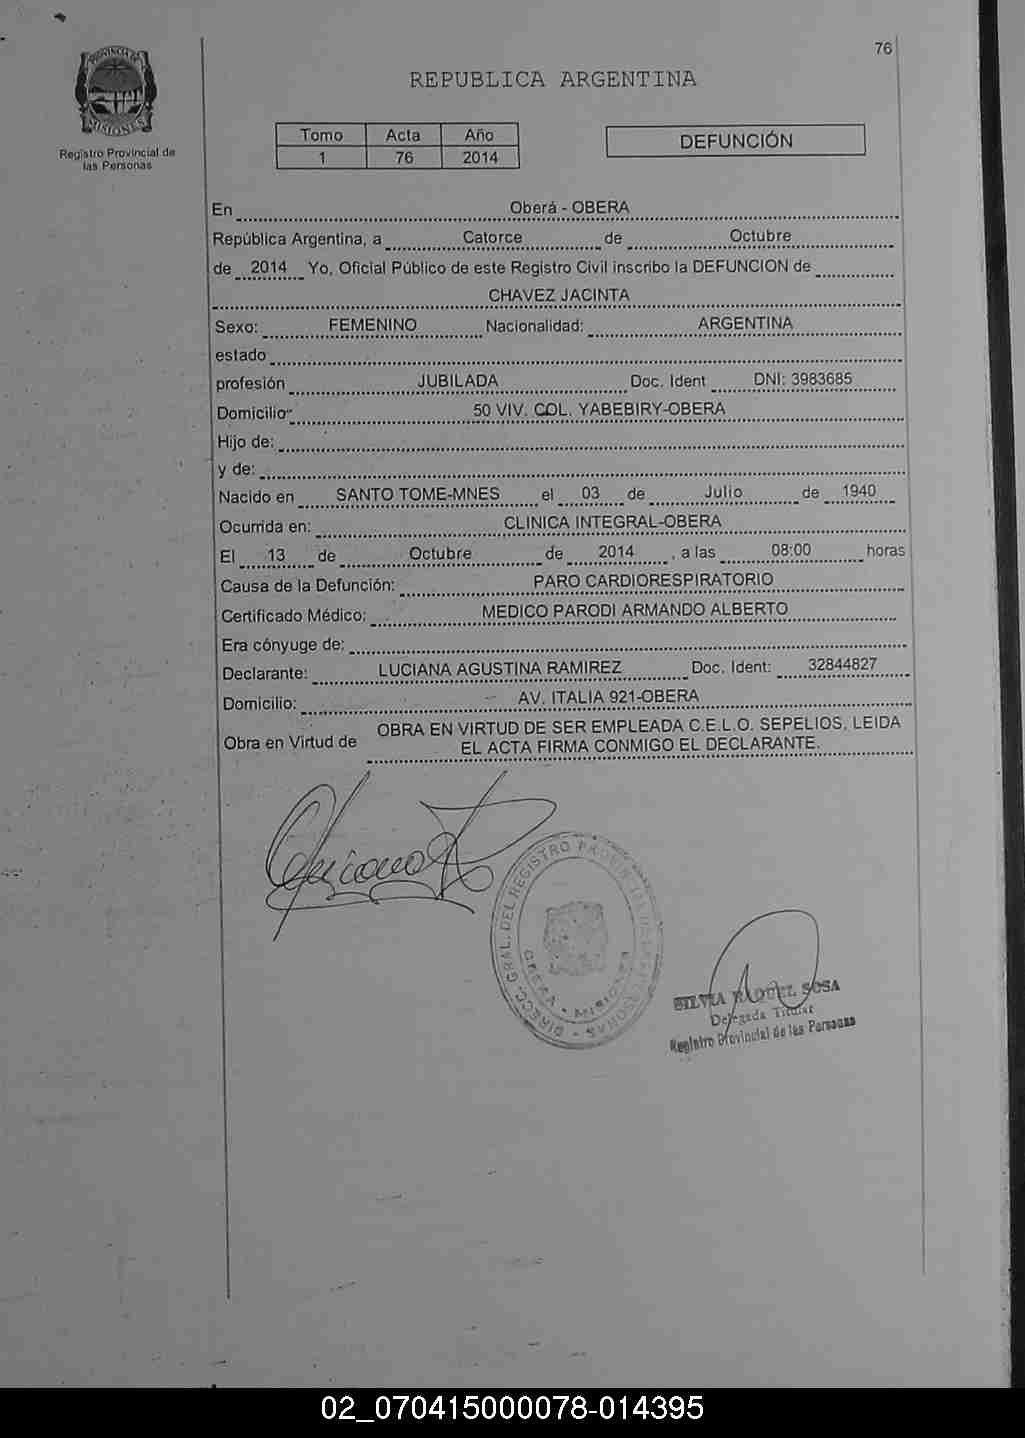 76
PROVINCIA DE
MISIONES
Registro Provincial de
las Personas
REPUBLICA ARGENTINA
Tomo Acta Año
1 76 2014
DEFUNCIÓN
En Oberá - OBERA
República Argentina, a Catorce de Octubre
de 2014 Yo, Oficial Público de este Registro Civil inscribo la DEFUNCION de
CHAVEZ JACINTA
Sexo: FEMENINO Nacionalidad: ARGENTINA
estado
profesión JUBILADA Doc. Ident DNI: 3983685
Domicilio 50 VIV. COL. YABEBIRY-OBERA
Hijo de:
y de:
Nacido en SANTO TOME-MNES el 03 de Julio de 1940
Ocurrida en: CLINICA INTEGRAL-OBERA
El 13 de Octubre de 2014, a las 08:00 horas
Causa de la Defunción: PARO CARDIORESPIRATORIO
Certificado Médico: MEDICO PARODI ARMANDO ALBERTO
Era cónyuge de:
Declarante: LUCIANA AGUSTINA RAMIREZ Doc. Ident: 32844827
Domicilio: AV. ITALIA 921-OBERA
Obra en Virtud de OBRA EN VIRTUD DE SER EMPLEADA C.E.L.O. SEPELIOS, LEIDA
EL ACTA FIRMA CONMIGO EL DECLARANTE.
DIRECC. GRAL. DEL REGISTRO PERSONAS
OBERA - MISIONES
SILVIA RAQUEL SOSA
Delegada Titular
Registro Provincial de las Personas
02_070415000078-014395